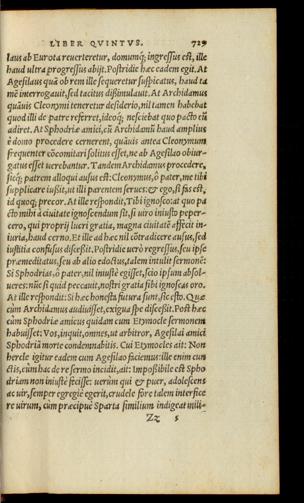 LIBER QVINTVS. 729
laus ab Eurota reuerteretur, domumq́; ingressus est, ille
haud ultra progressus abijt. Postridie hæc eadem egit. At
Agesilaus quã ob rem ille sequeretur suspicatus, haud ta
mẽ interrogauit, sed tacitus dißimulauit. At Archidamus
quãuis Cleonymi teneretur desiderio, nil tamen habebat
quod illi de patre referret, ideoq́; nesciebat quo pacto eũ
adiret. At Sphodriæ amici, cũ Archidamũ haud amplius
è domo procedere cernerent, quãuis antea Cleonymum
frequenter cõcomitari solitus esset, ne ab Agesilao obiur-
gatus esset uerebantur. Tandem Archidamus procedere,
sicq́; patrem alloqui ausus est: Cleonymus, ô pater, me tibi
supplicare iußit, ut illi parentem serues: & ego, si fas est,
id quoq; precor. At ille respondit, Tibi ignosco: at quo pa
cto mihi à ciuitate ignoscendum sit, si uiro iniusto peper-
cero, qui proprij lucri gratia, magna ciuitatẽ affecit in-
iuria, haud cerno. Et ille ad hæc nil cõtradicere ausus, sed
iustitia confusus discessit. Postridie uerò regressus, seu ipse
præmeditatus, seu ab alio edoctus, talem intulit sermonẽ:
Si Sphodrias, ô pater, nil iniustè egisset, scio ipsum absol-
ueres: nũc si quid peccauit, nostri gratia sibi ignoscas oro.
At ille respondit: Si hæc honesta futura sunt, sic esto. Quæ
cùm Archidamus audiuisset, exigua spe discessit. Post hæc
cùm Sphodriæ amicus quidam cum Etymocle sermonem
habuisset: Vos, inquit, omnes, ut arbitror, Agesilai amici
Sphodriã morte condemnabitis. Cui Etymocles ait: Non
hercle igitur eadem cum Agesilao faciemus: ille enim cun
ctis, cùm hac de re sermo incidit, ait: Impoßibile est Spho
driam non iniustè fecisse: uerùm qui & puer, adolescens
ac uir, semper egregiè egerit, crudele fore talem interfice
re uirum, cùm præcipuè Sparta similium indigeat mili-
Zz 5